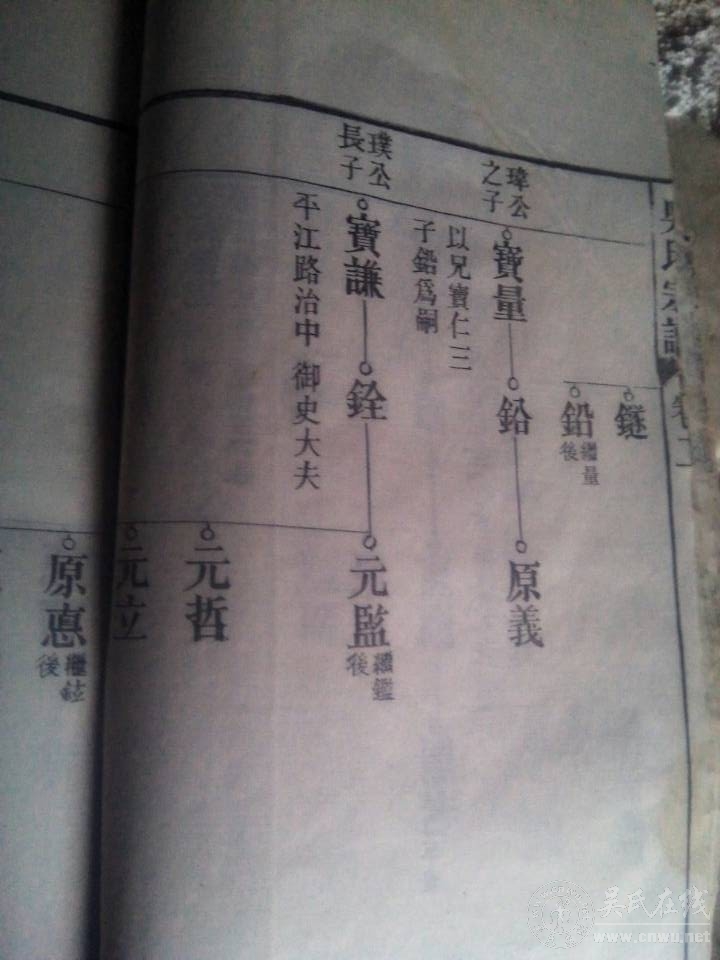 吳氏宗譜
卷
鐩
鉛
繼量
後
瑋公
之子
寶量
以兄寶仁三
子鉛爲嗣
鉛
原義
璞公
長子
寶謙
平江路治中 御史大夫
銓
元監
繼鑑
後
元哲
元立
原惪
繼鉉
後
吴氏在线
www.cnwu.net